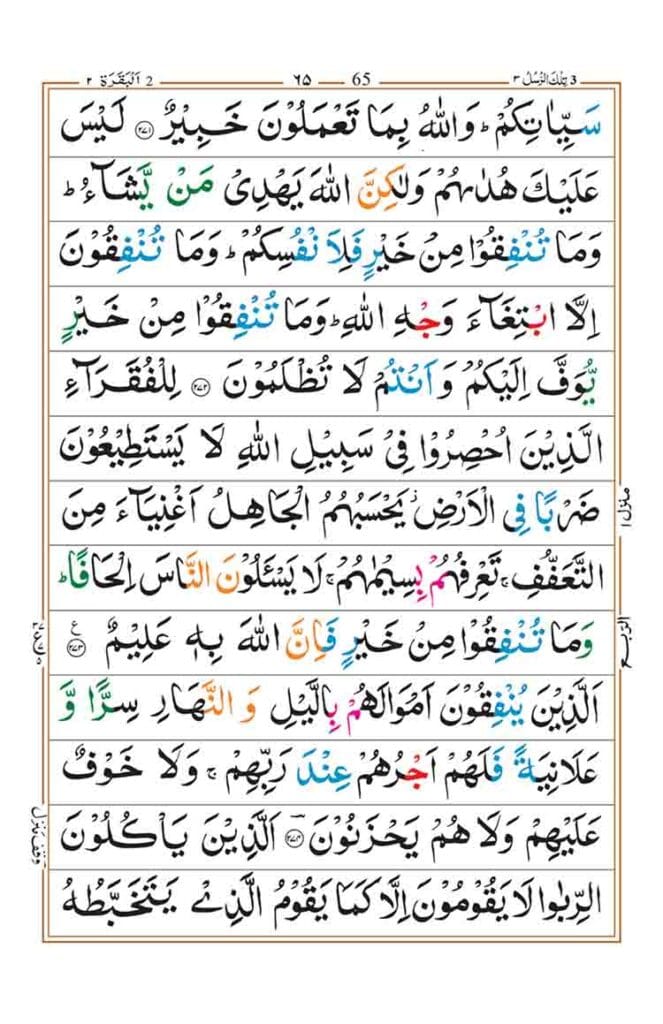 3 تِلْكَ الرُّسُلُ ٣
65 — ٦٥
2 اَلْبَقَرَة ٢
سَيِّاٰتِكُمْ ؕ وَاللّٰهُ بِمَا تَعْمَلُوْنَ خَبِيْرٌ ﴿۲۷۱﴾ لَيْسَ
عَلَيْكَ هُدٰىهُمْ وَلٰكِنَّ اللّٰهَ يَهْدِىْ مَنْ يَّشَآءُ ؕ
وَمَا تُنْفِقُوْا مِنْ خَيْرٍ فَلِاَنْفُسِكُمْ ؕ وَمَا تُنْفِقُوْنَ
اِلَّا ابْتِغَآءَ وَجْهِ اللّٰهِ ؕ وَمَا تُنْفِقُوْا مِنْ خَيْرٍ
يُّوَفَّ اِلَيْكُمْ وَاَنْتُمْ لَا تُظْلَمُوْنَ ﴿۲۷۲﴾ لِلْفُقَرَآءِ
الَّذِيْنَ اُحْصِرُوْا فِىْ سَبِيْلِ اللّٰهِ لَا يَسْتَطِيْعُوْنَ
ضَرْبًا فِى الْاَرْضِ ؗ يَحْسَبُهُمُ الْجَاهِلُ اَغْنِيَآءَ مِنَ
التَّعَفُّفِ ۚ تَعْرِفُهُمْ بِسِيْمٰهُمْ ۚ لَا يَسْئَلُوْنَ النَّاسَ اِلْحَافًا ؕ
وَمَا تُنْفِقُوْا مِنْ خَيْرٍ فَاِنَّ اللّٰهَ بِهٖ عَلِيْمٌ ﴿۲۷۳﴾ ع
اَلَّذِيْنَ يُنْفِقُوْنَ اَمْوَالَهُمْ بِالَّيْلِ وَالنَّهَارِ سِرًّا وَّ
عَلَانِيَةً فَلَهُمْ اَجْرُهُمْ عِنْدَ رَبِّهِمْ ۚ وَلَا خَوْفٌ
عَلَيْهِمْ وَلَا هُمْ يَحْزَنُوْنَ ﴿۲۷۴﴾ اَلَّذِيْنَ يَاْكُلُوْنَ
الرِّبٰوا لَا يَقُوْمُوْنَ اِلَّا كَمَا يَقُوْمُ الَّذِىْ يَتَخَبَّطُهُ
منزل ١
الربع
وقف منزل